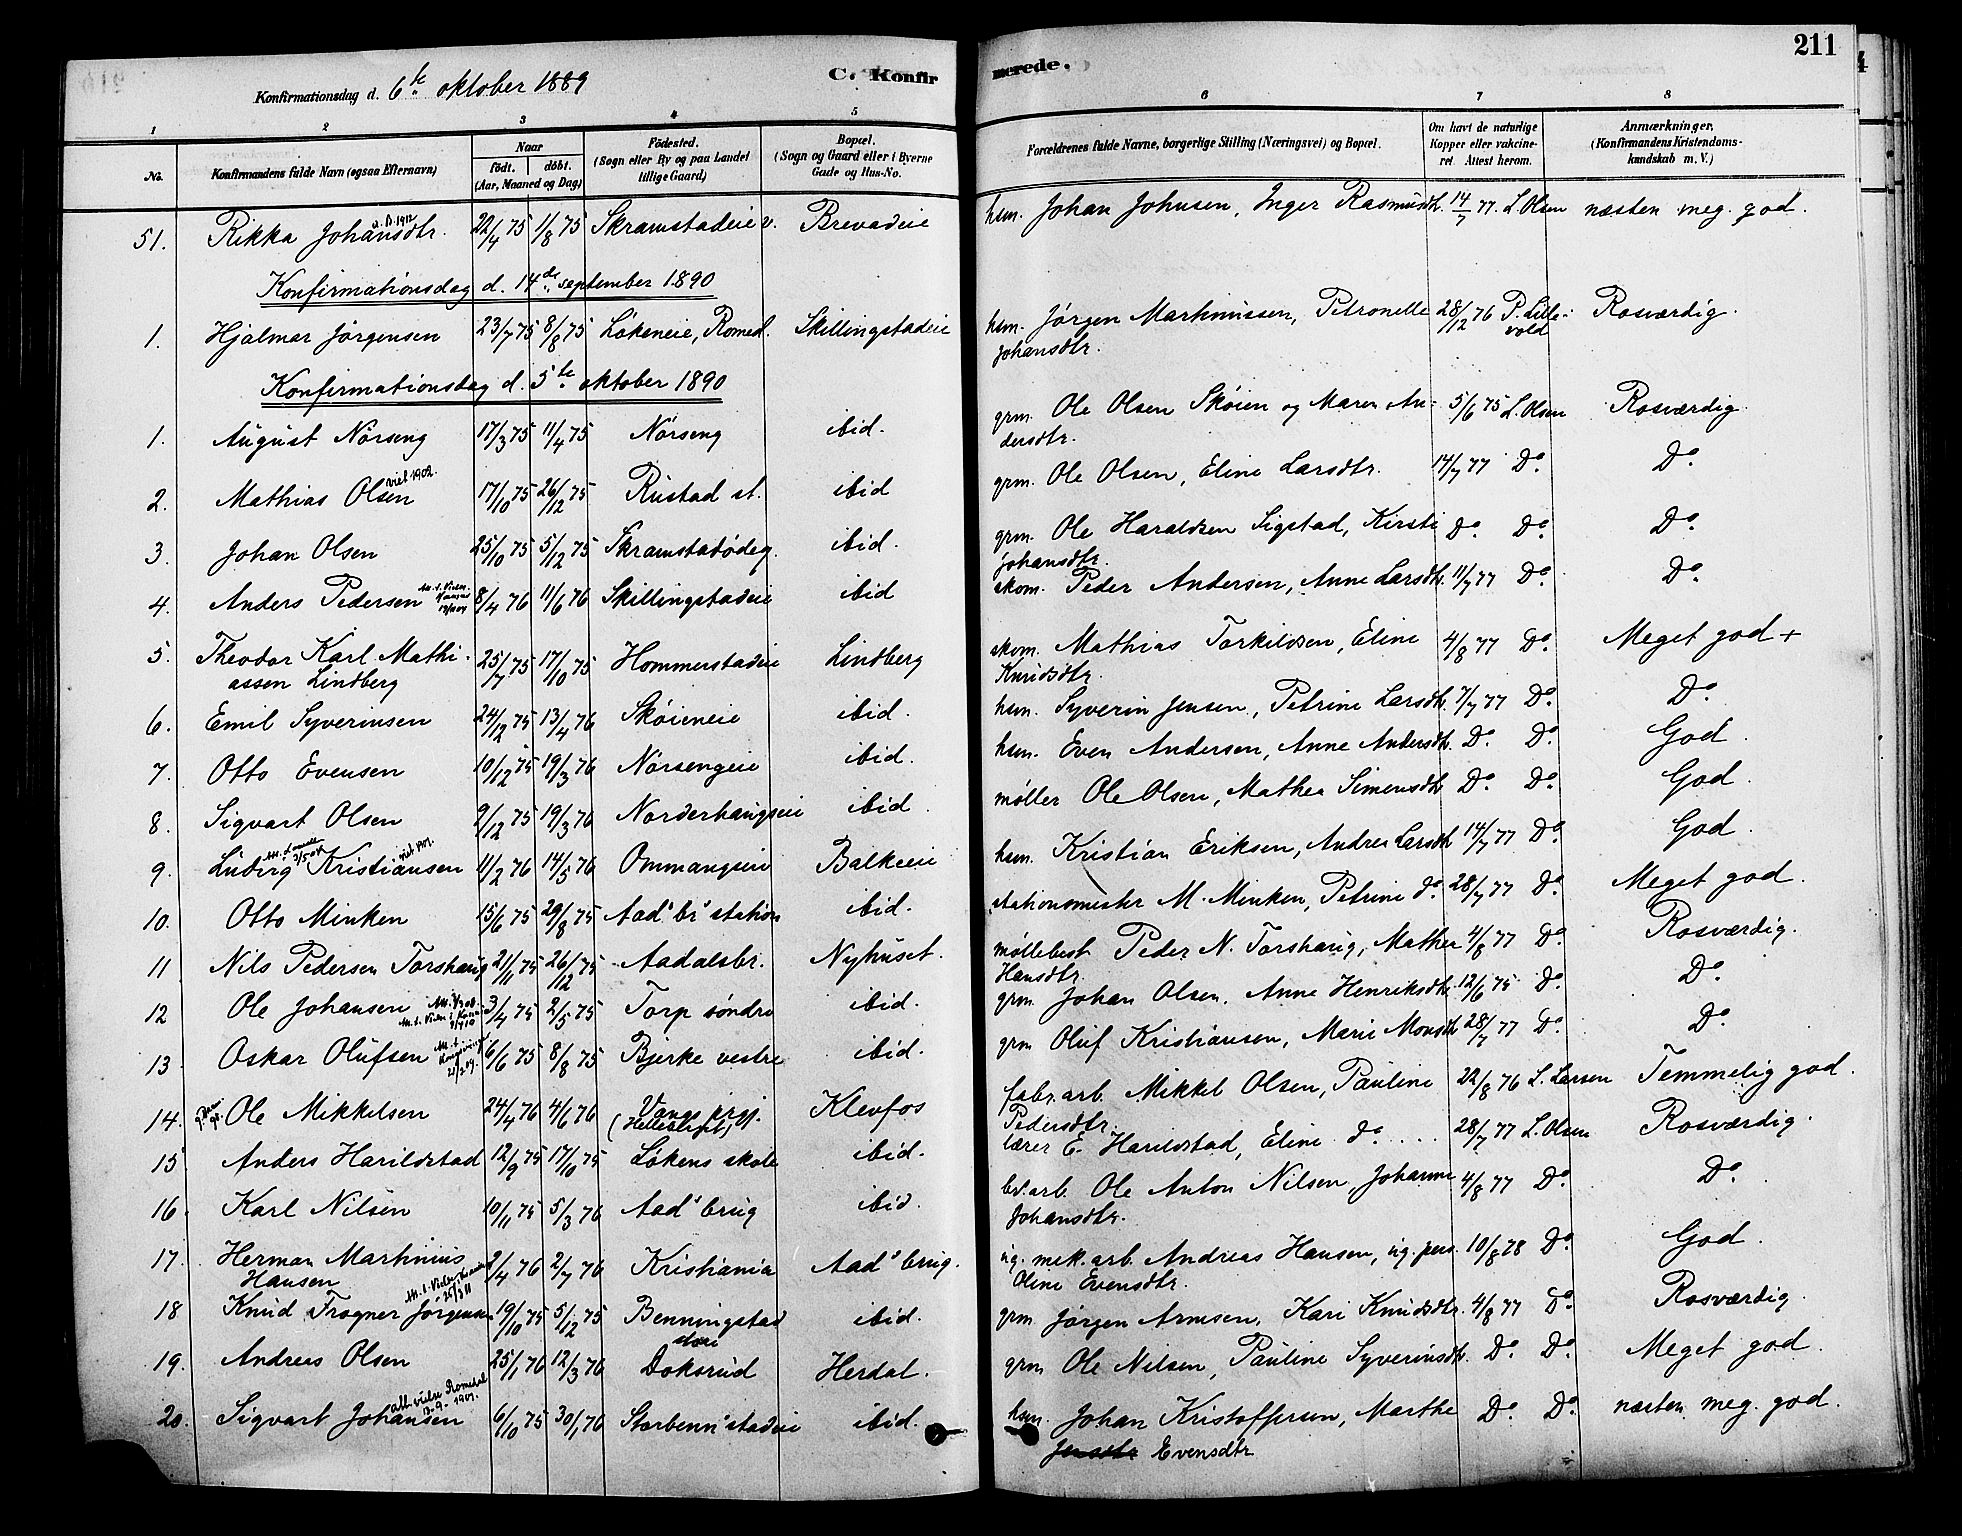 211
C. Konfirmerede.
Konfirmationsdag d. 6te oktober 1889
1 2 3 4 5 6 7 8
No. Konfirmandens fulde Navn (ogsaa Efternavn) Naar födt. döbt. (Aar, Maaned og Dag) Födested. (Sogn eller By og paa Landet tillige Gaard) Bopæl. (Sogn og Gaard eller i Byerne Gade og Hus-No. Forældrenes fulde Navne, borgerlige Stilling (Næringsvei) og Bopæl. Om havt de naturlige Kopper eller vakcineret. Attest herom. Anmærkninger, (Konfirmandens Kristendomskundskab m. V.)
51. Rikka Johansdtr. 22/4 75 1/8 75 Skramstadeie v. Brevadeie hsm. Johan Johnsen, Inger Rasmusdt. 14/7 77. L. Olsen næsten meg. god.
Konfirmationsdag d. 14de september 1890
1. Hjalmar Jørgensen 23/7 75 8/8 75 Løkeneie, Romed. Skillingstadeie hsm. Jørgen Martinussen, Petronelle Johansdtr. 28/12 76 P. Lillevold Rosværdig.
Konfirmationsdag d. 5te oktober 1890
1. August Nørseng 17/3 75 11/4 75 Nørseng ibid. grm. Ole Olsen Skøien og Maren Andersdtr. 5/6 75 L. Olsen Rosværdig.
2. Mathias Olsen viet 1902. 17/10 75 26/12 75 Rustad st. ibid grm. Ole Olsen, Eline Larsdtr. 14/7 77 Do. Do.
3. Johan Olsen 25/10 75 5/12 75 Skramstadødeg. ibid. grm. Ole Haraldsen Sigstad, Kirsti Johansdtr. Do. Do. Do.
4. Anders Pedersen 8/4 76 11/6 76 Skillingstadeie ibid skom. Peder Andersen, Anne Larsdtr. 11/7 77 Do. Do.
5. Theodor Karl Mathiassen Lindberg 25/7 75 17/10 75 Hommerstadeie Lindberg skom. Mathias Torkildsen, Eline Knudsdtr. 4/8 77 Do. Meget god +
6. Emil Syverinsen 24/12 75 13/4 76 Skøieneie ibid. hsm. Syverin Jensen, Petrine Larsdtr. 7/7 77 Do. Do.
7. Otto Evensen 10/12 75 19/3 76 Nørsengeie ibid. hsm. Even Andersen, Anne Andersdtr. Do. Do. God.
8. Sigvart Olsen 2/12 75 19/3 76 Norderhaugseie ibid. møller Ole Olsen, Mathea Simensdtr Do. Do. God.
9. Ludvig Kristiansen 11/2 76 14/5 76 Ommangseie Balkeeie hsm. Kristian Eriksen, Andrea Larsdtr 14/7 77 Do. God.
10. Otto Minken 15/6 75 29/8 75 Aads br station ibid. stationsmester M. Minken, Petrine do. 28/7 77 Do. Meget god.
11 Nils Pedersen Torshaug 21/11 75 26/12 75 Aadalsbr. Nyhuset. møllebest Peder N. Torshaug, Mathea Hansdtr. 4/8 77 Do. Rosværdig.
12 Ole Johansen 3/4 75 2/5 75 Torp søndre ibid. grm. Johan Olsen, Anne Henriksdtr. 12/6 75 Do. Do.
13. Oskar Olufsen 6/6 75 8/8 75 Bjerke vestre ibid. grm Oluf Kristiansen, Marie Monsdtr 28/7 77 Do. Do.
14. Ole Mikkelsen 24/4 76 4/6 76 Vangs prgj. Klevfos fabr. arb. Mikkel Olsen, Pauline Pedersdtr. 22/8 76 L. Larsen Temmelig god.
15 Anders Harildstad 12/9 75 17/10 75 Løkens skole ibid. lærer E. Harildstad, Eline do. .... 28/7 77 L. Olsen Rosværdig.
16. Karl Nilsen 10/11 75 5/3 76 Aads brug ibid. br. arb. Ole Anton Nilsen, Johanne Johansdtr. 4/8 77 Do. Do.
17. Herman Martinius Hansen 2/4 76 2/7 76 Kristiania Aads brug. ug. mek. arb. Andreas Hansen, ug. pers. Oline Evensdtr. 10/8 78 Do. God.
18 Knud Frogner Jørgensen 19/10 75 5/12 75 Benningstad store ibid. grm. Jørgen Arnesen, Kari Knudsdtr. 4/8 77 Do. Rosværdig.
19. Andreas Olsen 25/1 76 12/3 76 Doksrud Herdal. grm Ole Nilsen, Pauline Syverinsdtr. Do. Do. Meget god.
20. Sigvart Johansen 6/10 75 30/1 76 Storbennstadeie ibid. hsm. Johan Kristoffersen, Marthe Evensdtr Do. Do. næsten meg. god.